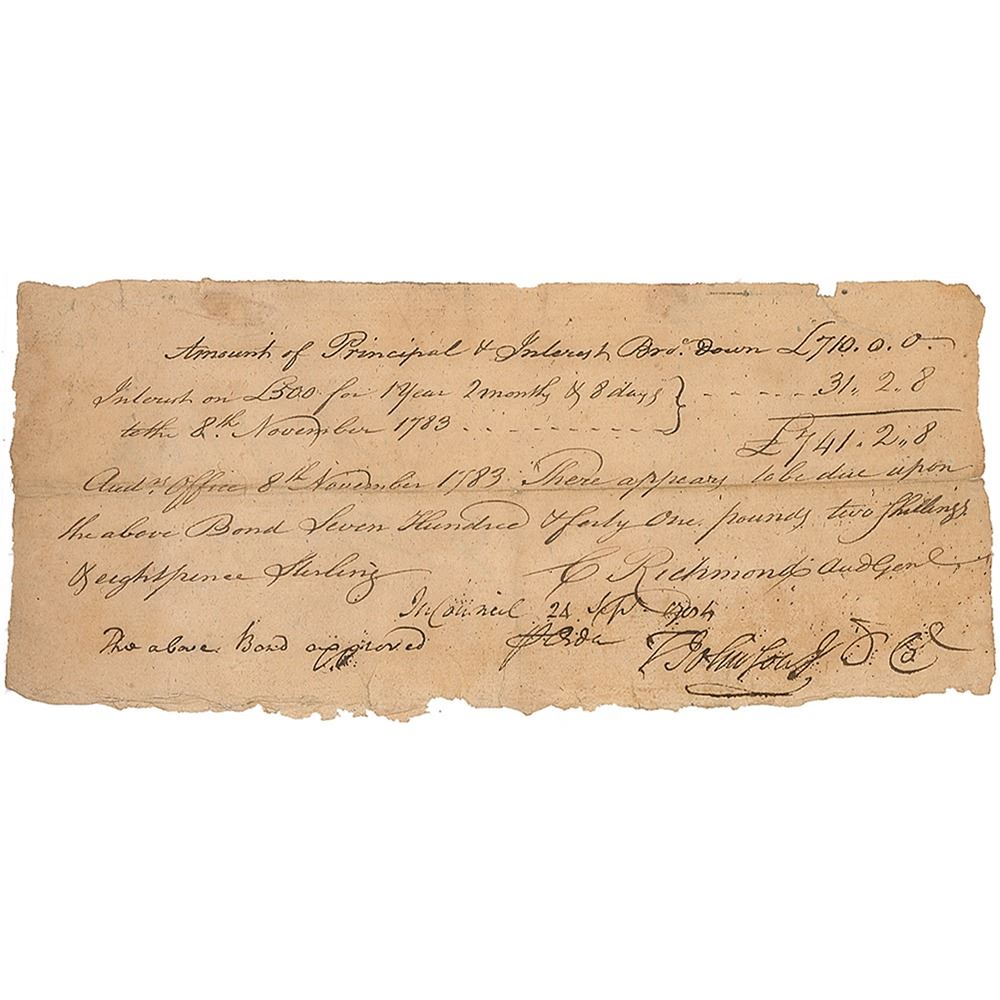 Amount of Principal & Interest Bro.t Down £710.0.0
Interest on £500 for 1 Year 2 months & 8 days } - - - - - 31,, 2,, 8
to the 8.th November 1783 - - - - - - - -
£741.2,,8
Aud.rs Office 8th November 1783 There appears to be due upon
the above Bond Seven Hundred & forty One pounds two Shillings
& eightpence Sterling C Richmond Aud Genl
In Council 24 Sep.
The above Bond approved T Johnson J